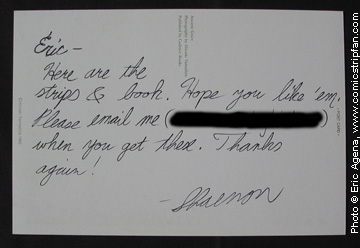 Eric –
Here are the
strips & book. Hope you like 'em.
Please email me ( )
when you get these. Thanks
again!
– Shaenon
POST CARD
Photo © Eric Agena / www.comicstripfan.com